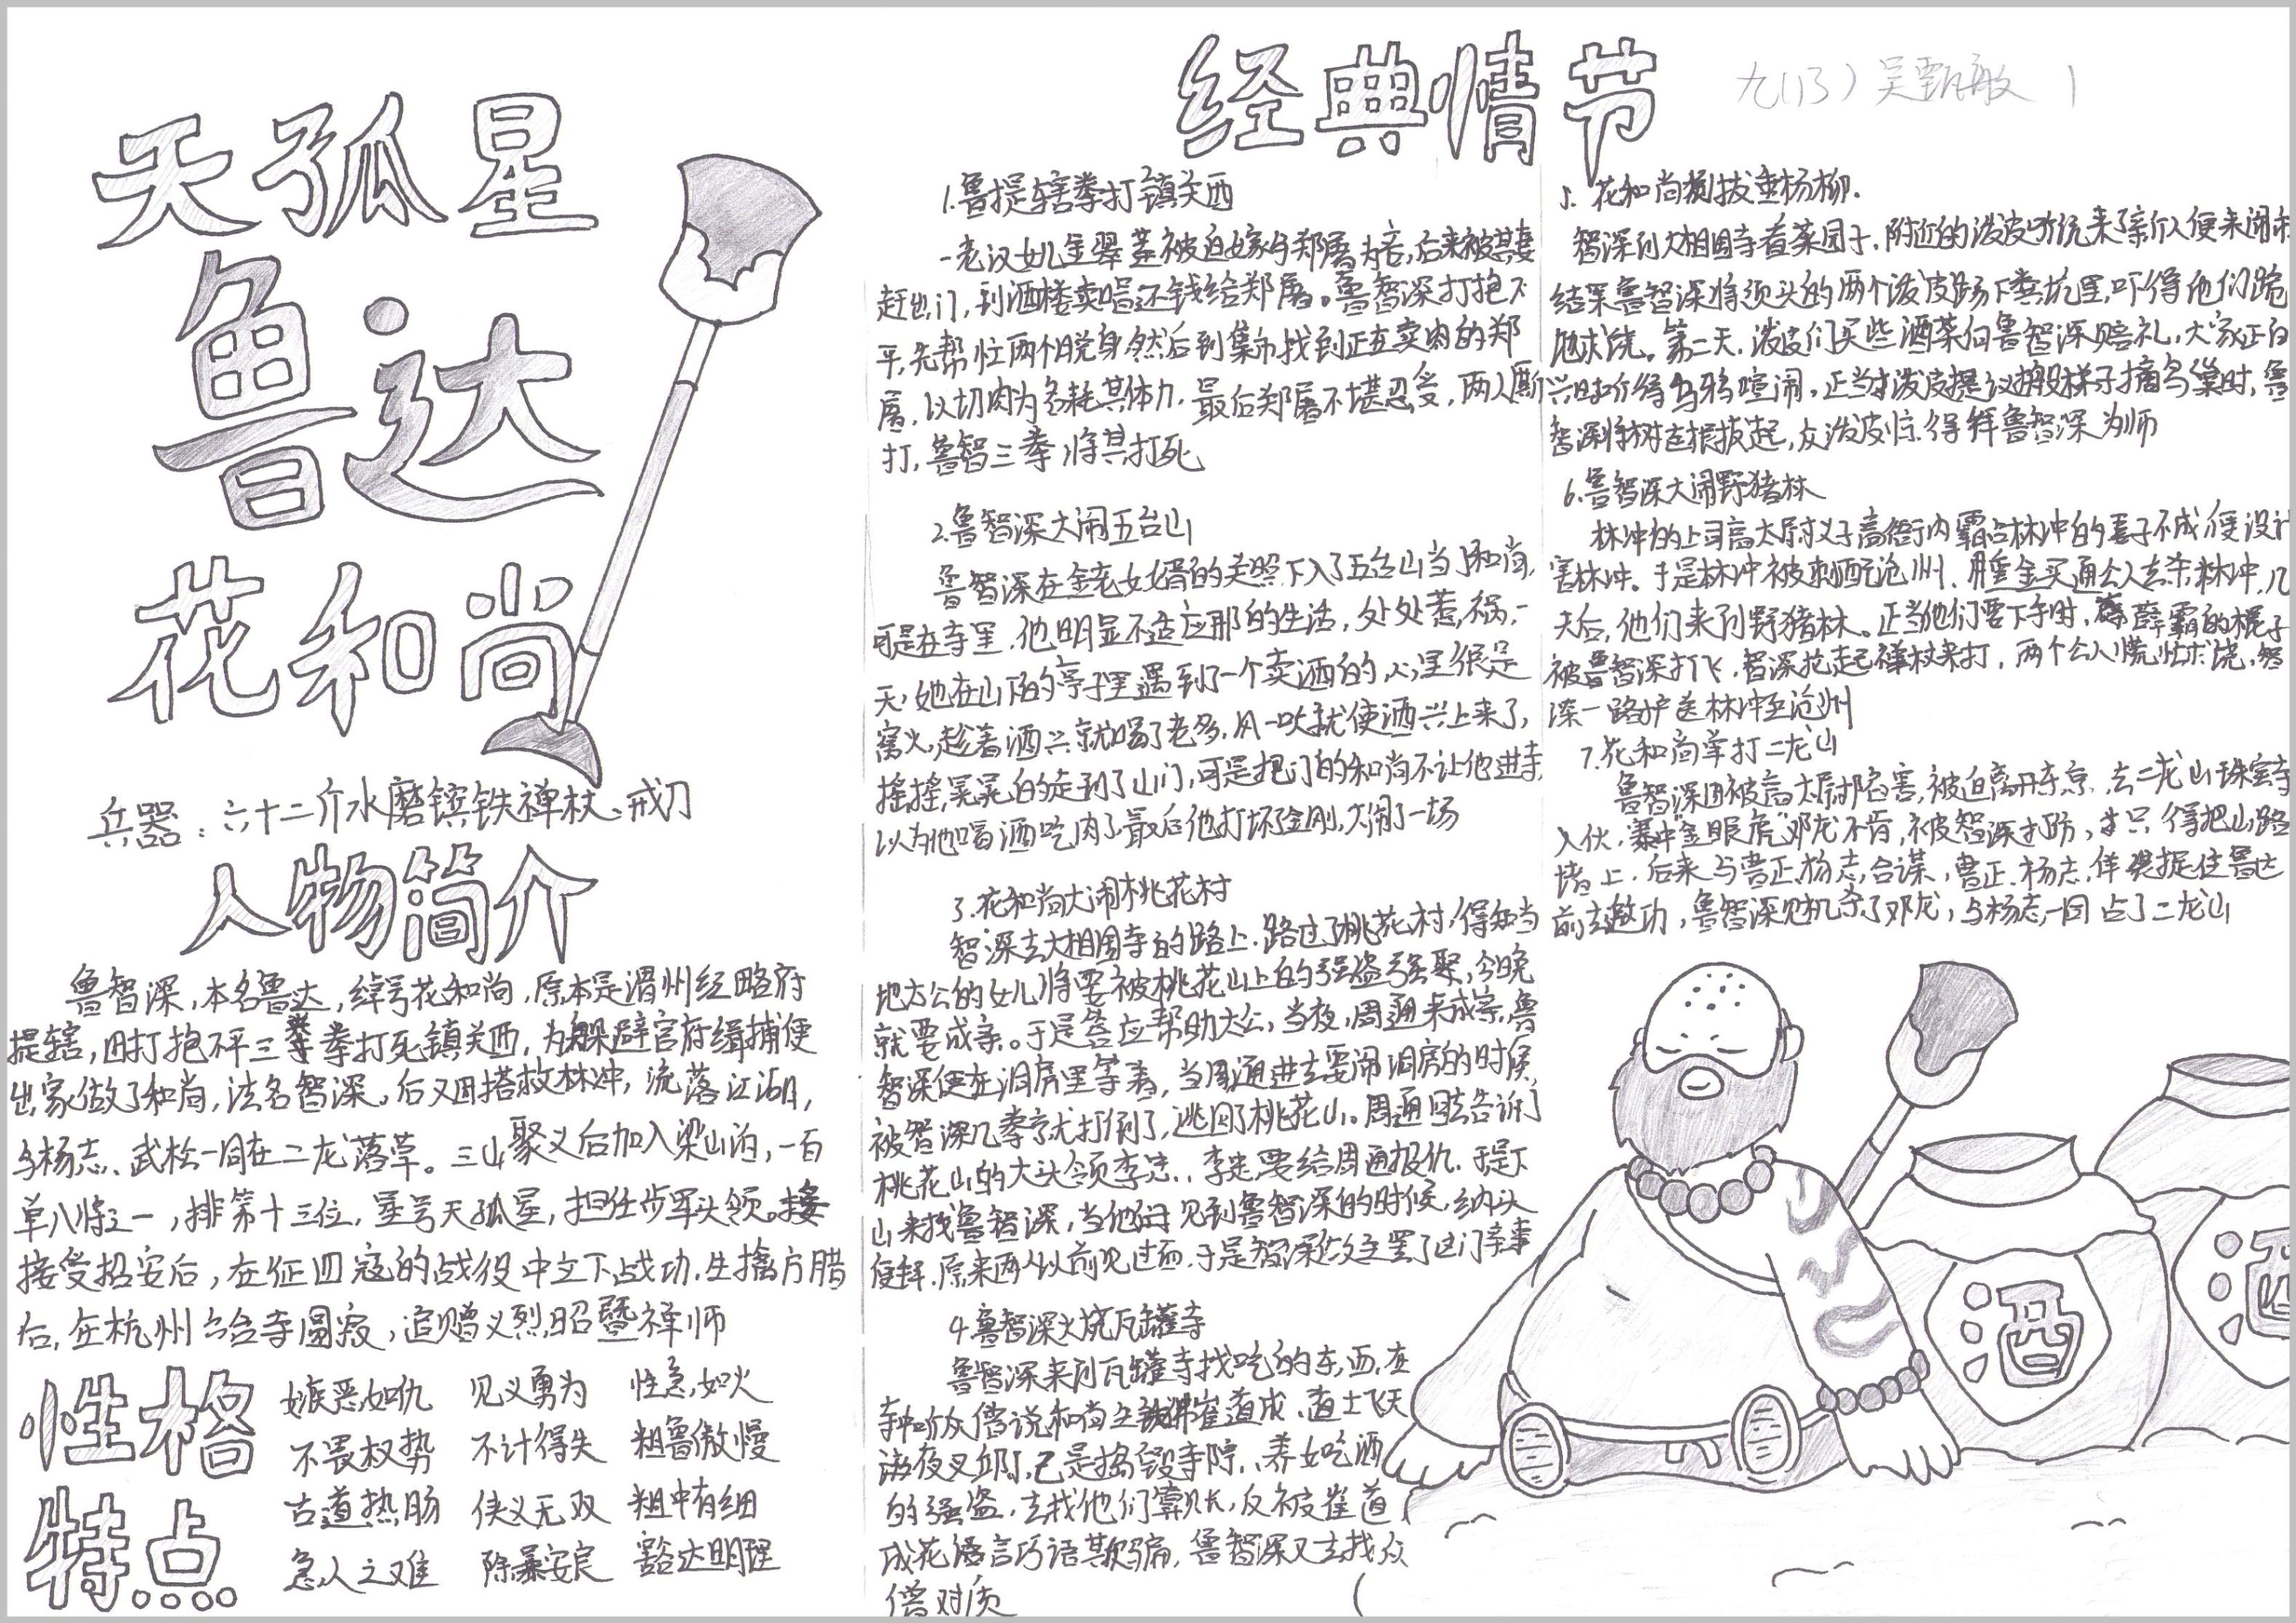 天孤星
鲁达
花和尚
兵器：六十二斤水磨镔铁禅杖、戒刀
人物简介
鲁智深，本名鲁达，绰号花和尚，原本是渭州经略府
提辖，因打抱不平三拳打死镇关西，为躲避官府缉捕便
出家做了和尚，法名智深。后又因搭救林冲，流落江湖，
与杨志、武松一同在二龙落草。三山聚义后加入梁山泊，一百
单八将之一，排第十三位，星号天孤星，担任步军头领。
接受招安后，在征四寇的战役中立下战功，生擒方腊
后，在杭州六合寺圆寂，追赠义烈昭暨禅师
性格
特点
嫉恶如仇 见义勇为 性急如火
不畏权势 不计得失 粗鲁傲慢
古道热肠 侠义无双 粗中有细
急人之难 除暴安良 豁达明理
经典情节
九(13) 吴甄敏 1
1.鲁提辖拳打镇关西
一老汉女儿金翠莲被迫嫁与郑屠为妾，后来被其妻
赶出门，到酒楼卖唱还钱给郑屠。鲁智深打抱不
平，先帮忙两个脱身然后到集市找到正在卖肉的郑
屠，以切肉为名耗其体力，最后郑屠不堪忍受，两人厮
打，鲁智三拳将其打死
2.鲁智深大闹五台山
鲁智深在金老女婿的关照下入了五台山当了和尚，
可是在寺里，他明显不适应那的生活，处处惹祸，一
天，她在山下的亭子里遇到了一个卖酒的，心里很是
窝火，趁着酒兴就喝了老多，风一吹就使酒兴上来了，
摇摇晃晃的走到了山门，可是把门的和尚不让他进寺，
以为他喝酒吃肉了最后他打坏金刚，大闹了一场
3.花和尚大闹桃花村
智深去大相国寺的路上，路过了桃花村，得知当
地方公的女儿将要被桃花山上的强盗强娶，今晚
就要成亲。于是答应帮助太公，当夜，周通来成亲，鲁
智深便在洞房里等着，当周通进去要闹洞房的时候，
被智深几拳就打倒了，逃回了桃花山。周通回去告诉了
桃花山的大头领李忠，李忠要给周通报仇，于是下
山来找鲁智深，当他们见到鲁智深的时候，纳头
便拜，原来两人以前见过面，于是智深做主罢了这门亲事
4.鲁智深火烧瓦罐寺
鲁智深来到瓦罐寺找吃的东西，在
寺中听众僧说和尚生铁佛崔道成、道士飞天
游夜叉邱，已是捣毁寺院、养女吃酒
的强盗，去找他们算账，反被崔道
成花语言巧语欺骗，鲁智深又去找众
僧对质
5.花和尚倒拔垂杨柳.
智深到大相国寺看菜园子，附近的泼皮听说来了新人便来闹事
结果鲁智深将领头的两个泼皮踢下粪坑里，吓得他们跪
地求饶。第二天，泼皮们买些酒菜向鲁智深赔礼，大家正自
兴时听得乌鸦喧闹，正当才泼皮提议搬梯子摘鸟巢时，鲁
智深将树连根拔起，众泼皮惊得拜鲁智深为师
6.鲁智深大闹野猪林
林冲的上司高太尉义子高衙内霸占林冲的妻子不成便设计
害林冲。于是林冲被刺配沧州，用重金买通公人去杀林冲，几
天后，他们来到野猪林。正当他们要下手时，薛霸的棍子
被鲁智深打飞，智深抡起禅杖来打，两个公人慌忙求饶，智
深一路护送林冲至沧州
7.花和尚单打二龙山
鲁智深因被高太尉陷害，被迫离开东京，去二龙山珠宝寺
入伙，寨中“金眼虎”邓龙不肯，被智深打防，才只得把山路
堵上，后来与曹正、杨志，合谋，曹正、杨志，佯装捉住鲁达
前去邀功，鲁智深见机杀了邓龙，与杨志一同占了二龙山
酒
酒